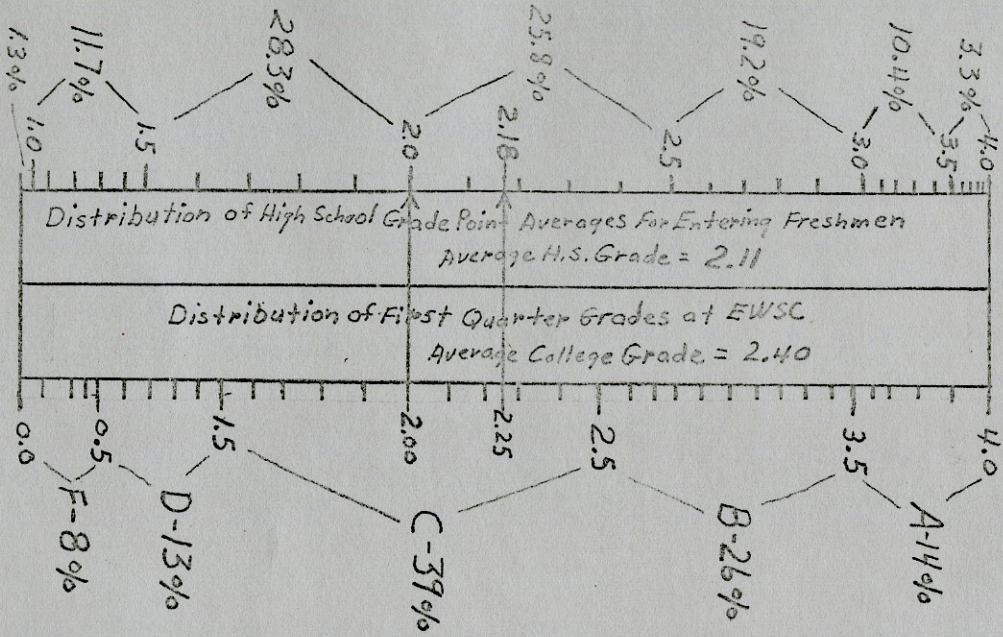 1.3% 11.7% 28.3% 25.8% 19.2% 10.4% 3.3%
1.0 1.5 2.0 2.18 2.5 3.0 3.5 4.0
Distribution of High School Grade Point Averages For Entering Freshmen
Average H.S. Grade = 2.11
Distribution of First Quarter Grades at EWSC
Average College Grade = 2.40
0.0 0.5 1.5 2.00 2.25 2.5 3.5 4.0
F-8% D-13% C-39% B-26% A-14%